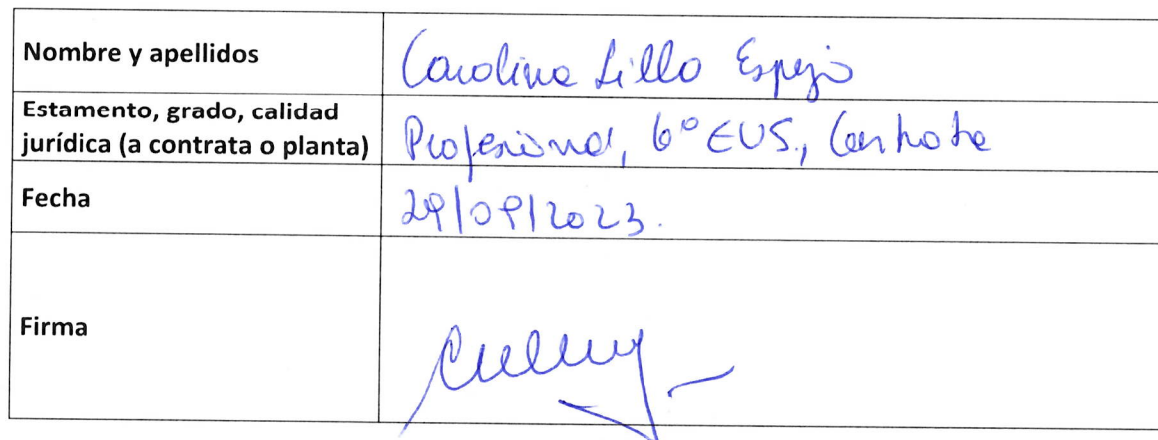 Nombre y apellidos
Carolina Lillo Espejo
Estamento, grado, calidad
jurídica (a contrata o planta)
Profesional, 6° EUS., Contrata
Fecha
29/09/2023.
Firma